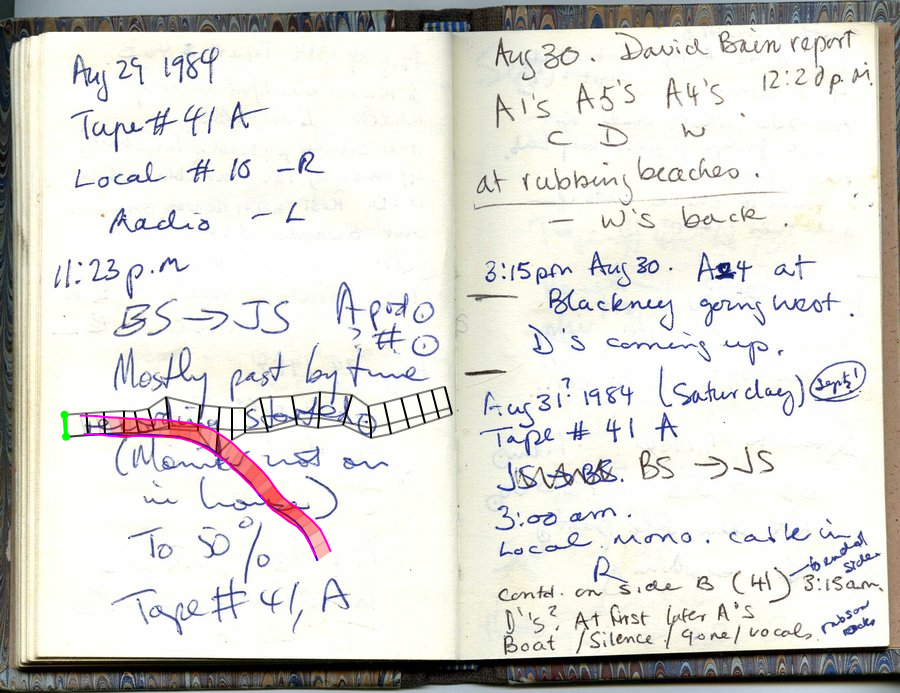 Aug 29 1984
Tape # 41 A
Local # 10 - R
Radio - L
11:23 p.m
BS → JS A pod ①
? # ①
Mostly past by time
recording started
(Monitor not on
in house)
To 50%
Tape # 41, A
Aug 30. David Bain report
12:20 p.m.
A1's A5's A4's
C D W
at rubbing beaches.
- W's back.
3:15pm Aug 30. A4 at
Blackney going west.
D's coming up.
Aug 31? 1984 (Saturday) Sept 1
Tape # 41 A
JS → BS. BS → JS
3:00 am.
Local mono. cable in
R
Contd. on side B (41) → to end of side 3:15am.
D's? At first later A's
Boat / Silence / gone / vocals robson